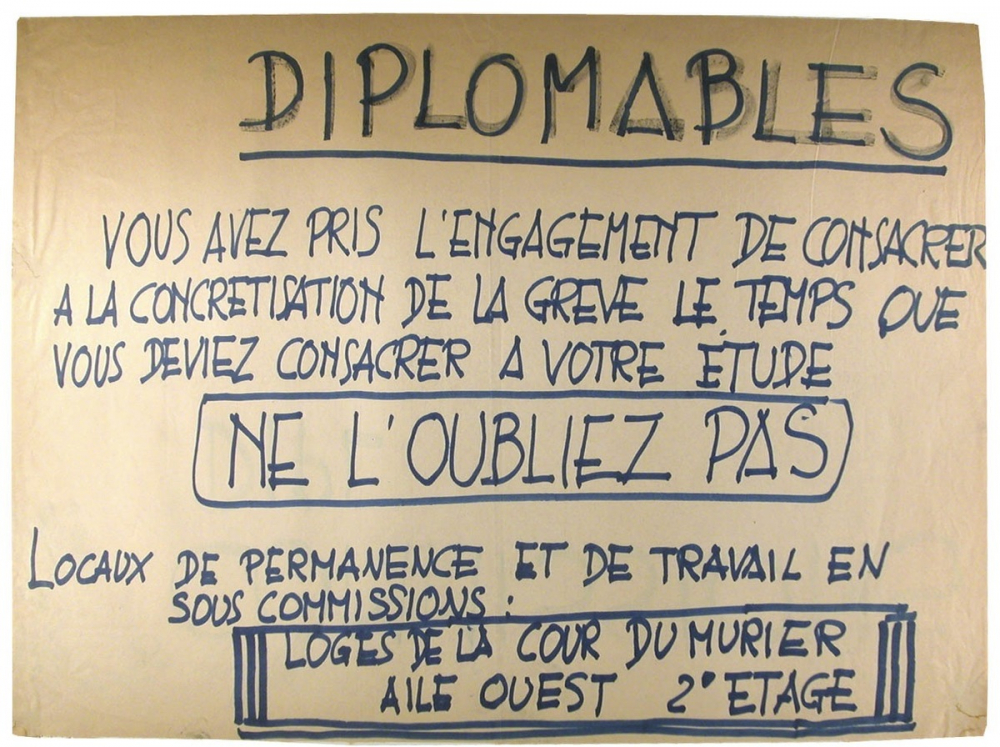 DIPLOMABLES
VOUS AVEZ PRIS L'ENGAGEMENT DE CONSACRER
A LA CONCRETISATION DE LA GREVE LE TEMPS QUE
VOUS DEVIEZ CONSACRER A VOTRE ETUDE
NE L'OUBLIEZ PAS
LOCAUX DE PERMANENCE ET DE TRAVAIL EN
SOUS COMMISSIONS :
LOGES DE LA COUR DU MURIER
AILE OUEST 2° ETAGE